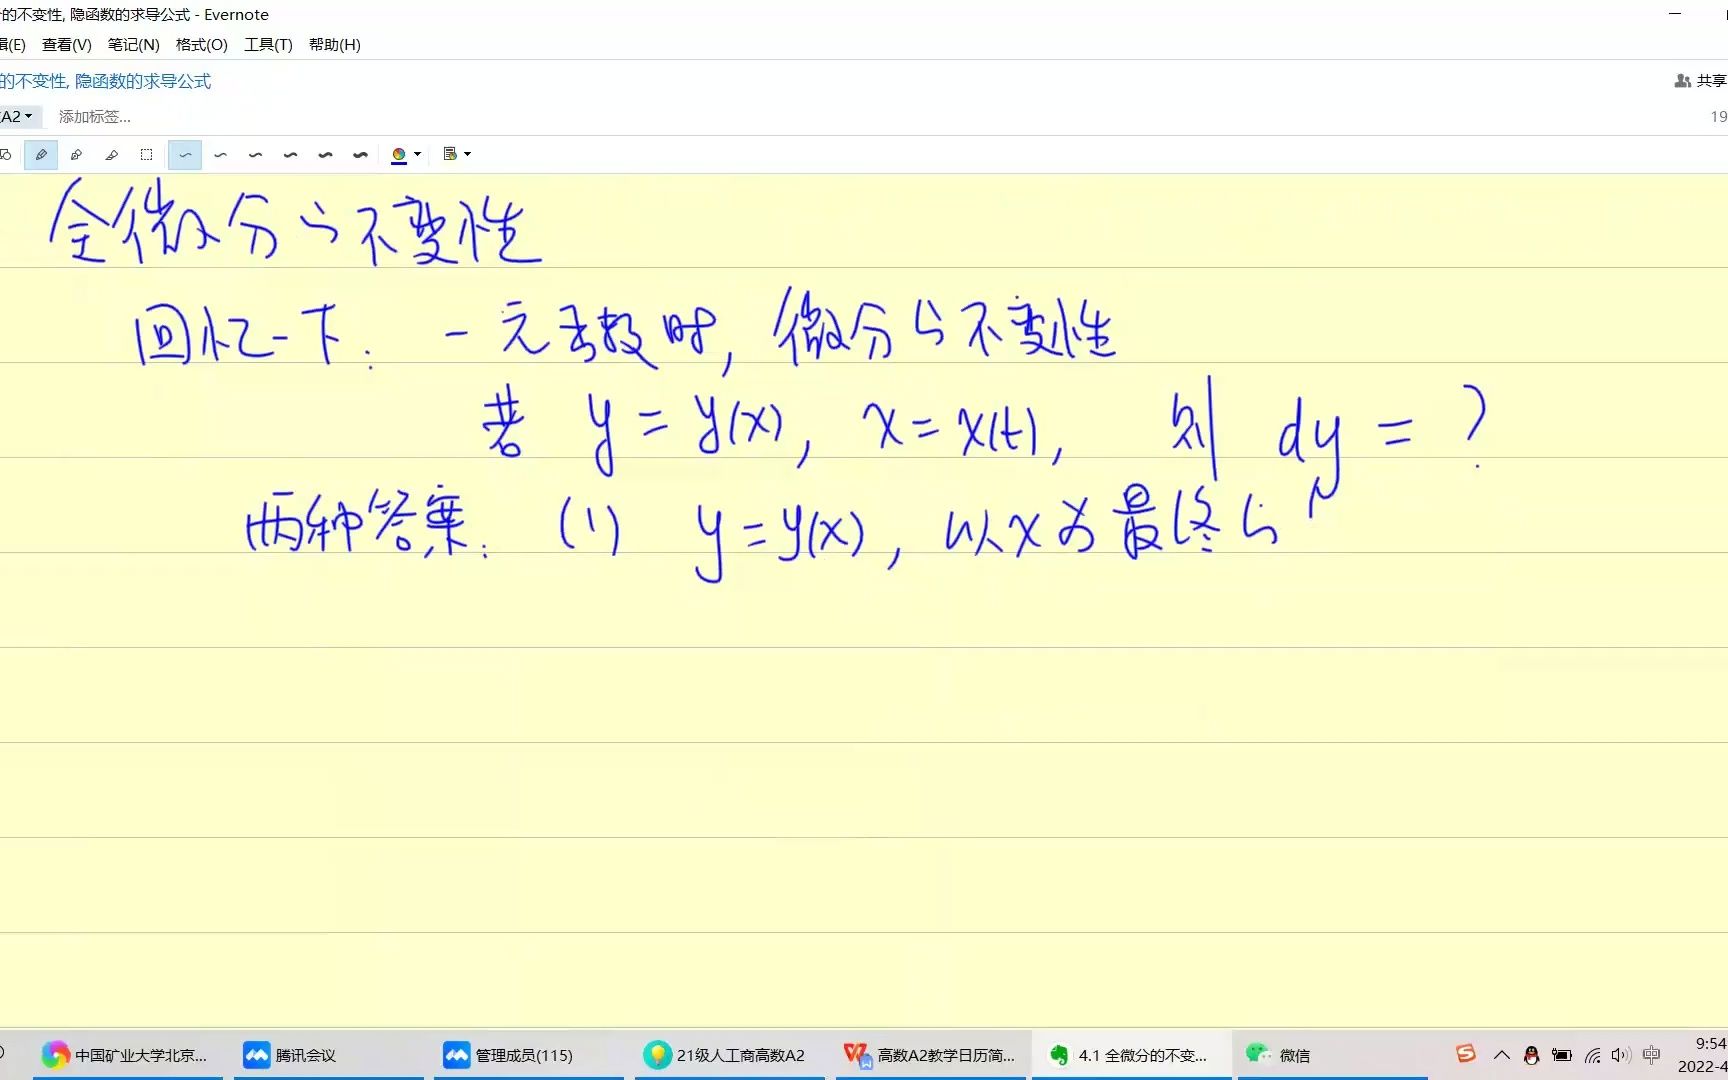 的不变性, 隐函数的求导公式 - Evernote
辑(E) 查看(V) 笔记(N) 格式(O) 工具(T) 帮助(H)
的不变性, 隐函数的求导公式
共享
A2
添加标签...
19
全微分的不变性
回忆一下: 一元函数时, 微分的不变性
若 y = y(x), x = x(t), 则 dy = ?
两种答案: (1) y = y(x), 以x为最终的
中国矿业大学北京...
腾讯会议
管理成员(115)
21级人工商高数A2
高数A2教学日历简...
4.1 全微分的不变...
微信
中
9:54
2022-4